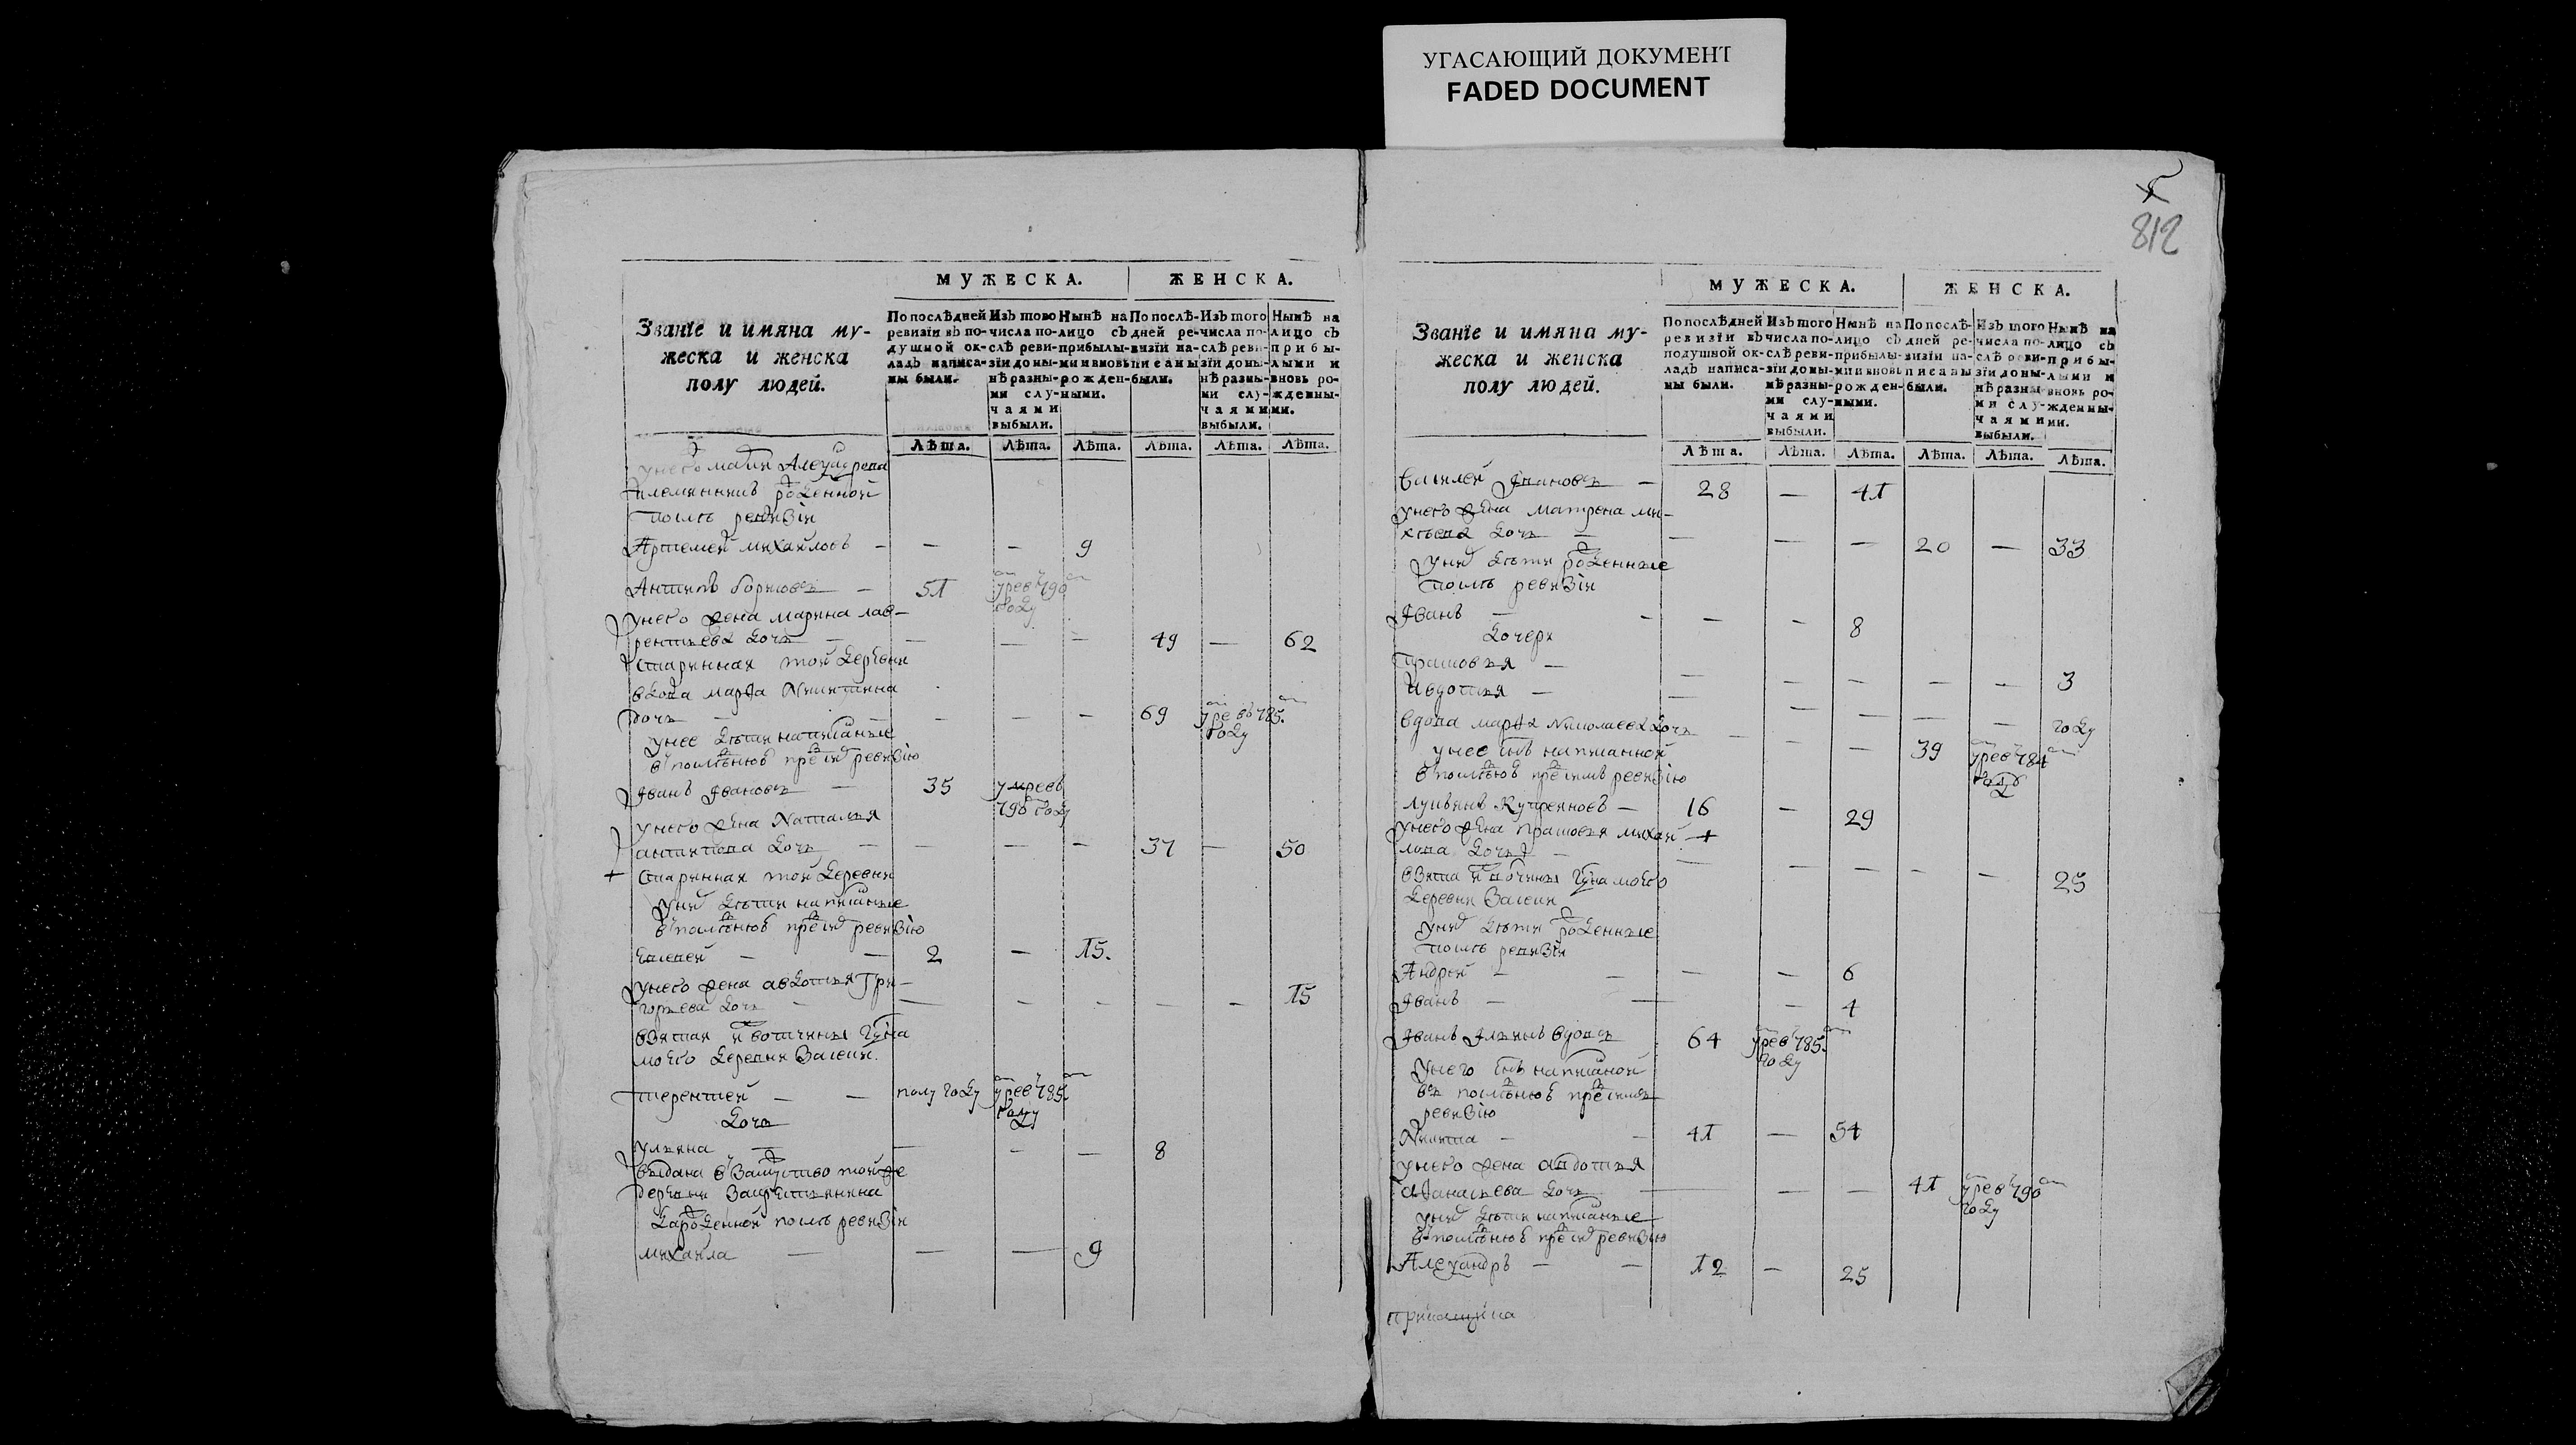 УГАСАЮЩИЙ ДОКУМЕНТ
FADED DOCUMENT
812
МУЖЕСКА. ЖЕНСКА.
Званїе и имяна му-
жеска и женска
полу людей.
По послѣдней ревизїи въ по-душной ок-ладъ написа-ны были.
Изъ того числа по-слѣ реви-зїи доны-нѣ разны-ми слу-чаями выбыли.
Нынѣ на лицо съ прибылы-ми и вновь рожден-ными.
По послѣ-дней ре-визїи на-писаны были.
Изъ того числа по-слѣ реви-зїи доны-нѣ разны-ми слу-чаями выбыли.
Нынѣ на лицо съ прибы-лыми и вновь ро-жденны-ми.
Лѣта. Лѣта. Лѣта. Лѣта. Лѣта. Лѣта.
племянникъ рожденной
после ревизiи
Артемей михайловъ — — — 9
Антипъ борисовъ — 51 умре въ 790 году
унего жена марина лав-
рентьева дочь — — — — 49 — 62
старинная той деревни
вдова марфа никитина
дочь — — — — 69 умре въ 785. году
унее дети написанные
в последнюю пред сим ревизiю
Иванъ Ивановъ — 35 умре въ 790 году
унего жена Наталья
антипова дочь — — — — 37 — 50
+ старинная той деревни
у них дети написанные
в последнюю пред сим ревизiю
Евсевей — — 2 — 15.
унего жена авдотья Гри-
горьева дочь — — — — — — 15
взятая из вотчины
деревни
терентей — — полугоду умре 785. году
дочь
ульяна — — — — 8
выдана в замужство той же
деревни за крестьянина
да рожденной после ревизiи
михайла — — — 9
МУЖЕСКА. ЖЕНСКА.
Званїе и имяна му-
жеска и женска
полу людей.
По послѣдней ревизїи въ подушной ок-ладъ написа-ны были.
Изъ того числа по-слѣ реви-зїи доны-нѣ разны-ми слу-чаями выбыли.
Нынѣ на лицо съ прибылы-ми и вновь рожден-ными.
По послѣ-дней ре-визїи на-писаны были.
Изъ того числа по-слѣ реви-зїи доны-нѣ разны-ми слу-чаями выбыли.
Нынѣ на лицо съ прибы-лыми и вновь ро-жденны-ми.
Лѣта. Лѣта. Лѣта. Лѣта. Лѣта. Лѣта.
Василей Ивановъ — 28 — 41
унего жена матрена ми-
хеева дочь — — — — 20 — 33
у них дети рожденные
после ревизiи
Иванъ — — — — 8
дочери
прасковья — — — — — — 3
Авдотья — — — — — — году
вдова марфа Николаева дочь — — — 39 умре 784 году
унее сын написанной
в последнюю пред сим ревизiю
лукьянъ — 16 — 29
унего жена прасковья михай- +
лова дочь — — — — — — 25
взята из вотчины
деревни
у них дети рожденные
после ревизiи
Андрей — — — — 6
Иванъ — — — 4
Иванъ Ильинъ вдовъ 64 умре 785. году
Унего сын написаной
въ последнюю пред сим
ревизiю
Никита — — 41 — 54
унего жена авдотья
афанасьева дочь — — — 41 умре 790 году
у них дети написанные
в последнюю пред сим ревизiю
Александръ — — 12 — 25